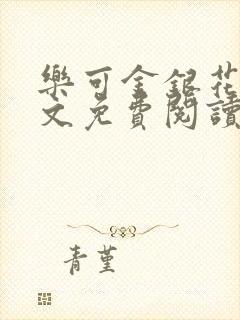 樂可金銀花
文免費閱讀
青堇